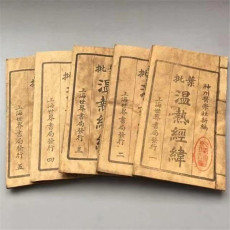 葉批
神州醫學社新編
溫熱經緯
上海世界書局發行 一
批
上海世界書局發行 二
批
溫熱經緯
上海世界書局發行 三
批
上海世界書局發行 四
批
上海世界書局發行 五